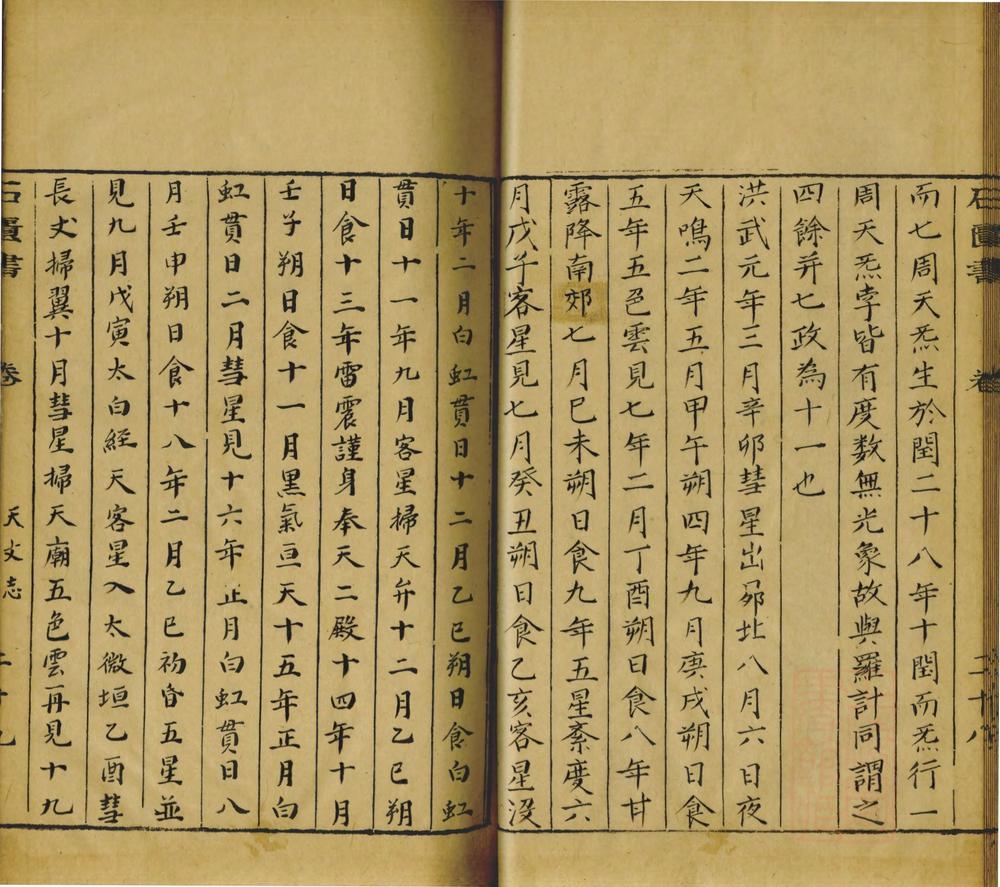 石匱書 卷 二十八
而七周天炁生於閏二十八年十閏而炁行一
周天炁孛皆有度数無光象故與羅計同謂之
四餘并七政為十一也
洪武元年三月辛卯彗星出昴北八月六日夜
天鳴二年五月甲午朔四年九月庚戌朔日食
五年五色雲見七年二月丁酉朔日食八年甘
露降南郊七月己未朔日食九年五星紊度六
月戊子客星見七月癸丑朔日食乙亥客星沒
十年二月白虹貫日十二月乙巳朔日食白虹
貫日十一年九月客星掃天弁十二月乙巳朔
日食十三年雷震謹身奉天二殿十四年十月
壬子朔日食十一月黒氣亘天十五年正月白
虹貫日二月彗星見十六年正月白虹貫日八
月壬申朔日食十八年二月乙巳初昏五星並
見九月戊寅太白經天客星入太微垣乙酉彗
長丈掃翼十月彗星掃天廟五色雲再見十九
石匱書 卷 天文志 二十九